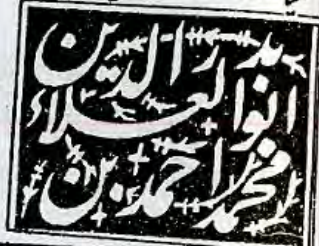 بدرالدین
انوالعلاء
محمد احمد بن